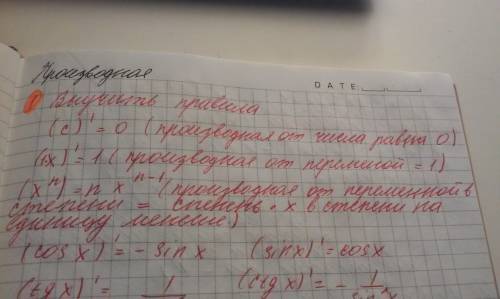 Производная
DATE
1 Выучить правила
(c)' = 0 (производная от числа равна 0)
(x)' = 1 (производная от перемиой = 1)
(xⁿ) = n xⁿ⁻¹ (производная от переменной в
степени = степень · x в степени на
единицу меньше)
(cos x)' = - sin x (sin x)' = cos x
(tg x)' = 1 (ctg x)' = - 1